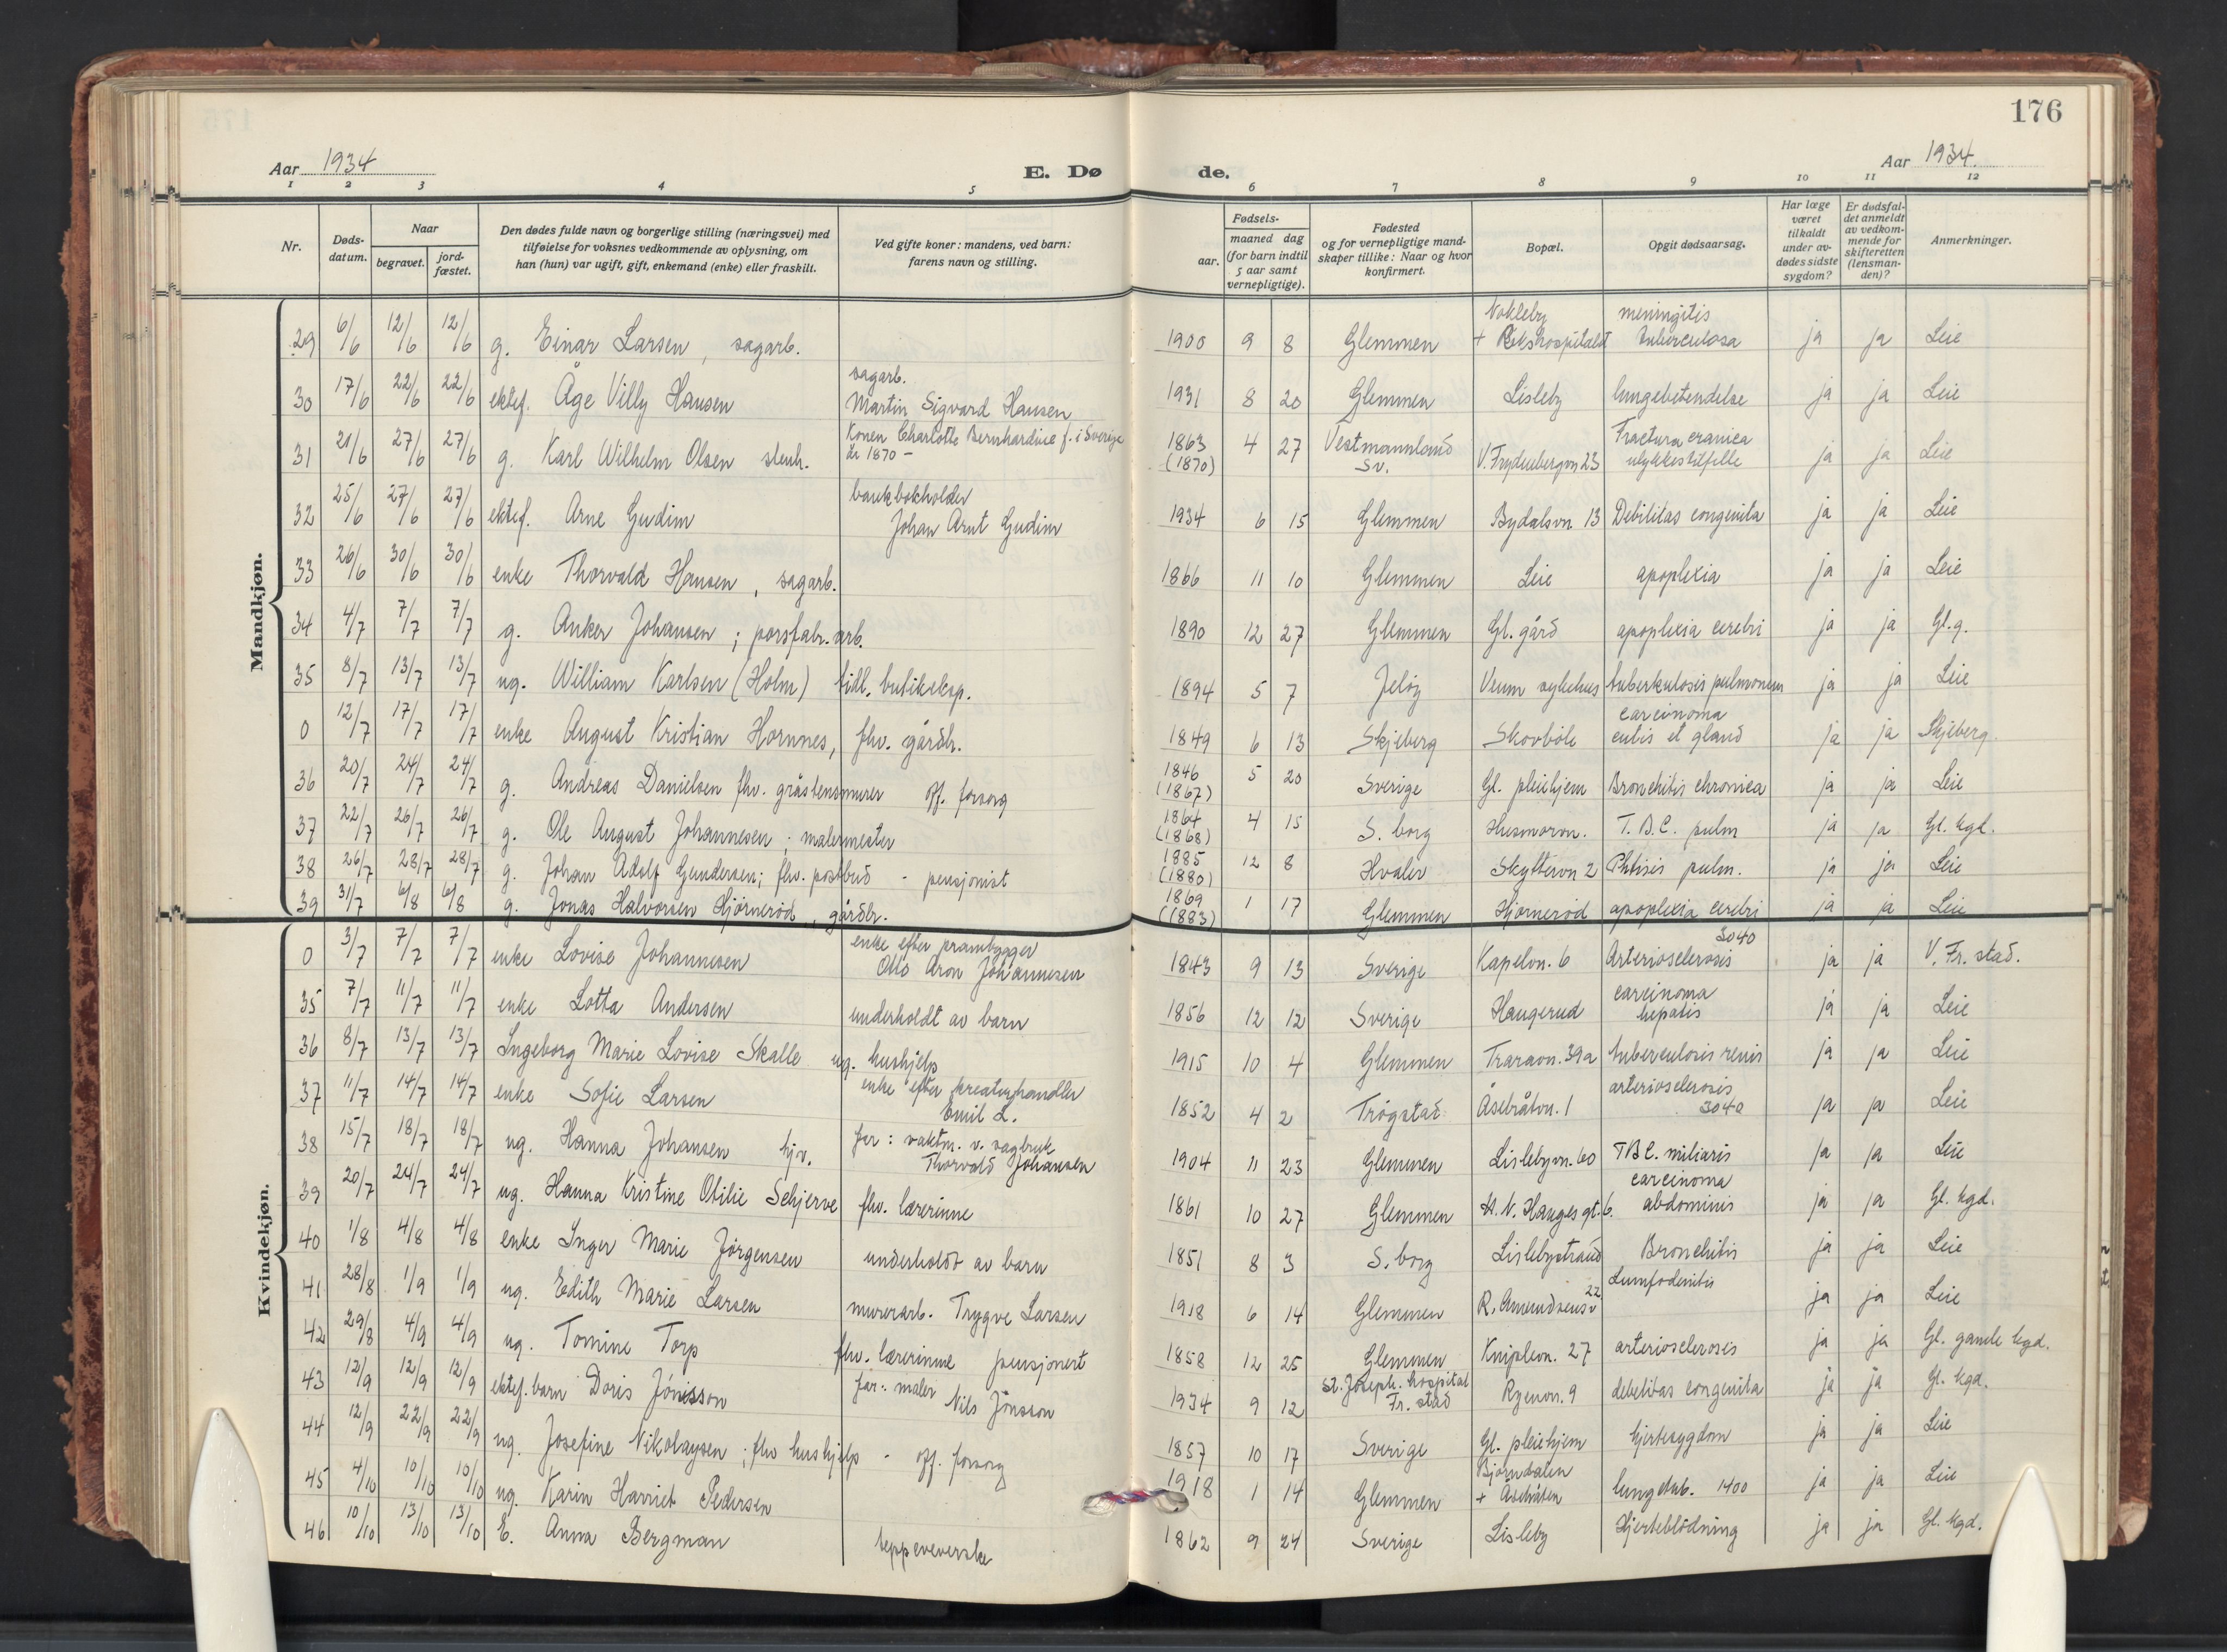 176
Aar 1934 E. Dø de. Aar 1934.
1 2 3 4 5 6 7 8 9 10 11 12
Nr.
Døds-
datum.
Naar
begravet.
jord-
fæstet.
Den dødes fulde navn og borgerlige stilling (næringsvei) med
tilføielse for voksnes vedkommende av oplysning, om
han (hun) var ugift, gift, enkemand (enke) eller fraskilt.
Ved gifte koner: mandens, ved barn:
farens navn og stilling.
Fødsels-
aar.
maaned dag
(for barn indtil
5 aar samt
vernepligtige).
Fødested
og for vernepligtige mand-
skaper tillike: Naar og hvor
konfirmert.
Bopæl.
Opgit dødsaarsag.
Har læge
været
tilkaldt
under av-
dødes sidste
sygdom?
Er dødsfal-
det anmeldt
av vedkom-
mende for
skifteretten
(lensman-
den)?
Anmerkninger.
Mandkjøn.
Nokleby meningitis
29 6/6 12/6 12/6 g. Einar Larsen, sagarb. 1900 9 8 Glemmen + Rikshospitalet tuberculosa ja ja Leie
sagarb.
30 17/6 22/6 22/6 ektef. Åge Villy Hansen Martin Sigvard Hansen 1931 8 20 Glemmen Lisleby lungebetendelse ja ja Leie
Konen Charlotte Bernhardine f. i Sverige 1863 Vestmannland Fractura cranica
31 21/6 27/6 27/6 g. Karl Wilhelm Olsen stenh. år 1870 - (1870) 4 27 Sv. V. Frydenbergvn 23 ulykkestilfelle ja ja Leie
bankbokholder
32 25/6 27/6 27/6 ektef. Arne Gudim Johan Arnt Gudim 1934 6 15 Glemmen Bydalsvn. 13 Debilitas congenita ja ja Leie
33 26/6 30/6 30/6 enke Thorvald Hansen, sagarb. 1866 11 10 Glemmen Leie apoplexia ja ja Leie
34 4/7 7/7 7/7 g. Anker Johansen; porsfabr. arb. 1890 12 27 Glemmen Gl. gård apoplexia cerebri ja ja Gl. g.
35 8/7 13/7 13/7 ug. William Karlsen (Holm) tidl. butikeksp. 1894 5 7 Jeløy Veum sykehus tuberkulosis pulmonum ja ja Leie
carcinoma
0 12/7 17/7 17/7 enke August Kristian Hornnes, fhv. gårdbr. 1849 6 13 Skjeberg Skovbøle cutis et gland ja ja Skjeberg.
36 20/7 24/7 24/7 g. Andreas Danielsen fhv. gråstensmurer off. forsorg 1846 (1867) 5 20 Sverige Gl. pleiehjem Bronchitis chronica ja ja Leie
37 22/7 26/7 26/7 g. Ole August Johannesen; malermester 1864 (1868) 4 15 S. borg Husmorvn. T.B.C. pulm ja ja Gl. kgd.
38 26/7 28/7 28/7 g. Johan Adolf Gundersen; fhv. postbud - pensjonist 1885 (1880) 12 8 Hvaler Skyttervn 2 Phtisis pulm. ja ja Leie
39 31/7 6/8 6/8 g. Jonas Halvorsen Hjørnerød, gårdbr. 1869 (1883) 1 17 Glemmen Hjørnerød apoplexia cerebri ja ja Leie
Kvindekjøn.
enke efter prambygger 3040
0 3/7 7/7 7/7 enke Lovise Johannesen Otto Aron Johannesen 1843 9 13 Sverige Kapelvn. 6 Arteriosclerosis ja ja V. Fr. stad.
carcinoma
35 7/7 11/7 11/7 enke Lotta Andersen underholdt av barn 1856 12 12 Sverige Haugerud hepatis ja ja Leie
36 8/7 13/7 13/7 Ingeborg Marie Lovise Skalle ug. hushjelp 1915 10 4 Glemmen Traravn. 39a tuberculosis renis ja ja Leie
enke efter kreaturhandler arteriosclerosis
37 11/7 14/7 14/7 enke Sofie Larsen Emil L. 1852 4 2 Trøgstad Åsebråtvn. 1 3040 ja ja Leie
far: vaktm. v. sagbruk
38 15/7 18/7 18/7 ug. Hanna Johansen hjv. Thorvald Johansen 1904 11 23 Glemmen Lislebyvn. 60 TBC. miliaris ja ja Leie
carcinoma
39 20/7 24/7 24/7 ug. Hanna Kristine Otilie Schjerve fhv. lærerinne 1861 10 27 Glemmen H. N. Hauges gt. 6. abdominis ja ja Gl. kgd.
40 1/8 4/8 4/8 enke Inger Marie Jørgensen underholdt av barn 1851 8 3 S. borg Lislebystrand Bronchitis ja ja Leie
22 Lumfodenitis
41 28/8 1/9 1/9 ug. Edith Marie Larsen murerarb. Trygve Larsen 1918 6 14 Glemmen R. Amundsensv ja ja Leie
42 29/8 4/9 4/9 ug. Tomine Torp fhv. lærerinne pensjonert 1858 12 25 Glemmen Kniplevn. 27 arteriosclerosis ja ja Gl. gamle kgd.
far: maler St. Joseph. hospital
43 12/9 12/9 12/9 ektef. barn Doris Jönsson Nils Jönsson 1934 9 12 Fr. stad Ryenvn. 9 debelitas congenita ja ja Gl. kgd.
44 12/9 22/9 22/9 ug. Josefine Nikolaysen; fhv hushjelp - off. forsorg 1857 10 17 Sverige Gl. pleiehjem hjertesygdom ja ja Leie
Bjørndalen
45 4/10 10/10 10/10 ug. Karin Harriet Pedersen 1918 1 14 Glemmen + Åsebråten lungetub. 1400 ja ja Leie
46 10/10 13/10 13/10 E. Anna Bergman teppeveverske 1862 9 24 Sverige Lisleby Hjerteblødning ja ja Gl. kgd.